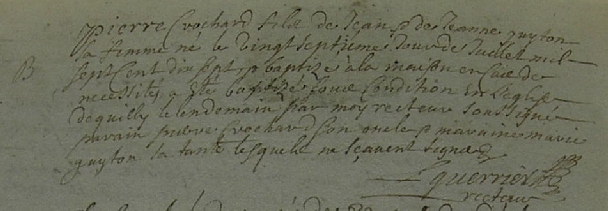 pierre Crochard fils de Jean & de Jeanne guyton
sa femme né le vingt septieme Jour de Juillet mil
B sept Cent dix sept & baptizé à la maison en Cas de
necessité a esté baptizé sous Condition en l'eglise
de quilly le lendemain par moy recteur soussigné
parain pierre Crochard son oncle & maraine marie
guyton sa tante lesquels ne sçavent signer
guerrier
recteur